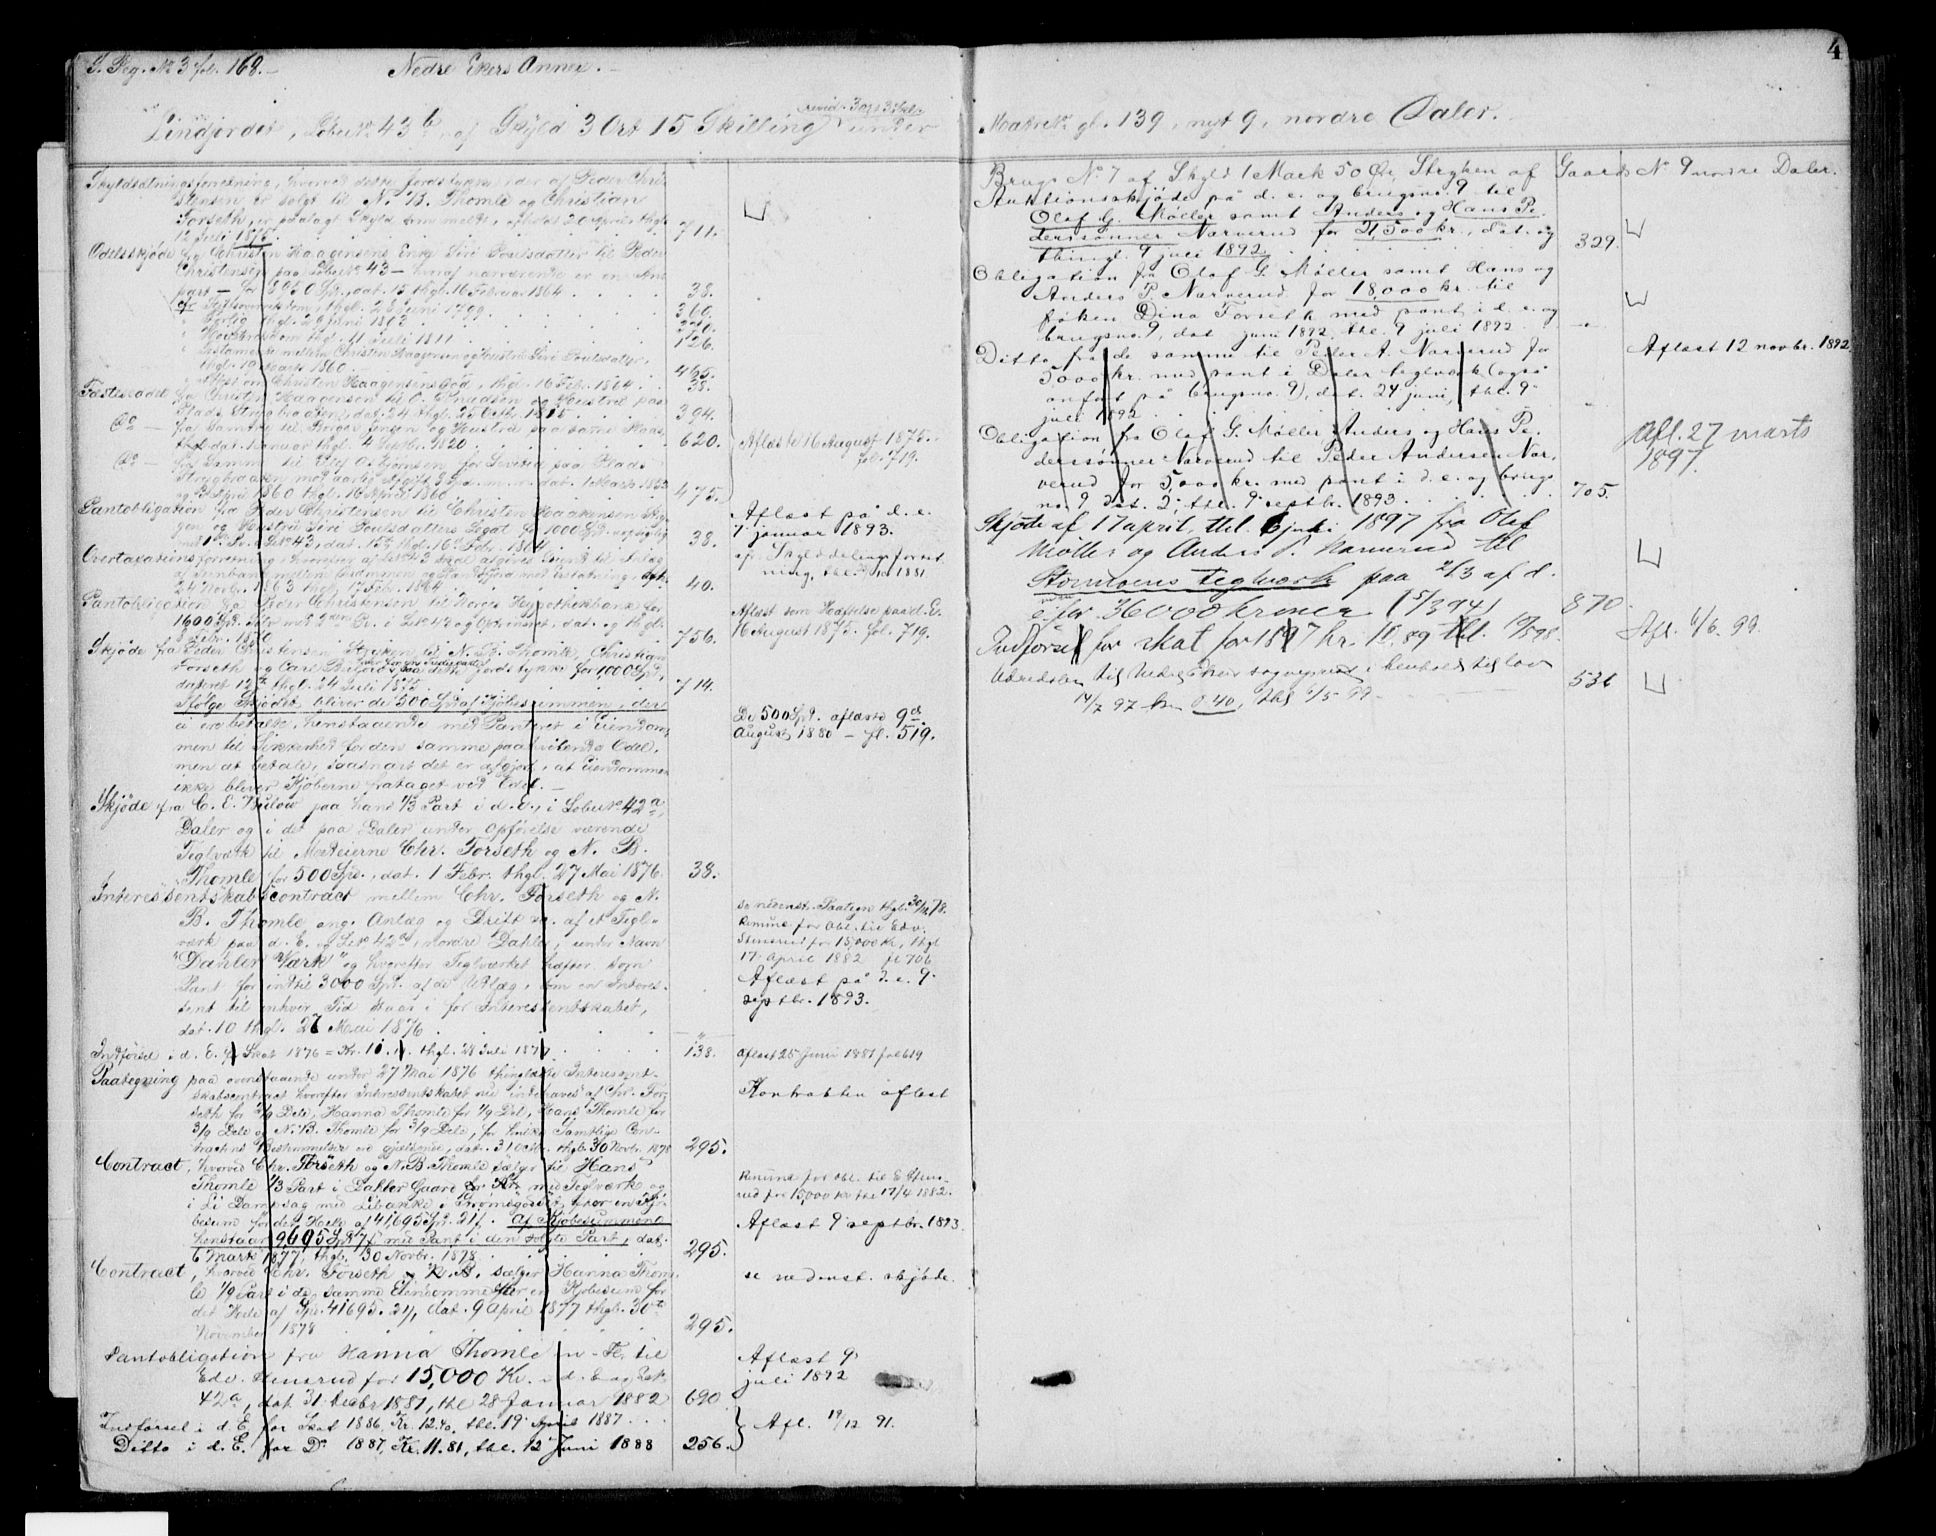 G. Reg. No 3 fol. 168.
Nedre Ekers Annex.
4
revid. 3 Ort 3 Skl.
Lindjordet, Løbe No 43 b af Skyld 3 Ort 15 Skilling under
Matr No gl. 139, nyt 9, nordre Daler.
Skyldsætningsforretning, hvorved dette Jordstykke, der af Peder Chri-
stensen er solgt til N. B. Thomle og Christian
Forseth, er paalagt Skyld som meldt, afholdt 20 April thgl.
12 Juli 1875. 711.
Odelsskjøde fra Christen Haagensens Enke Siri Poulsdatter til Peder
Christensen paa Løbe No 43 — hvoraf nærværende er en An-
part — for 3950 Spd., dat. 15 thgl. 16 Februar 1864 38.
thgl. 28 Juni 1799. 360.
thgl. 29 Juni 1803 370.
thgl. 11 Juli 1811 126.
Testamente mellem Christen Haagensen og Hustru Siri Poulsdatter,
thgl. 19 Marts 1860 465.
Attest om Christen Haagensens Død, thgl. 16 Febr. 1864 38.
Fæsteseddel fra Christen Haagensen til O. Knudsen og Hustru paa
Plads Strygbraaten, dat. 24 thgl. 25 Octbr. 1815 394.
Do — fra samme til Børge Jensen og Hustru paa samme Plads,
dat. Januar thgl. 4 Septbr. 1820 620.
Aflæst 16 August 1875.
fol. 719.
Do — fra samme til
Strygbraaten mod aarlig Afgift 8 Spd. m. m. dat. 1 Marts 1853
thgl. 16 April 1860 475.
Pantobligation fra Peder Christensen til Christen Haagensen
og Hustru Siri Poulsdatters Legat for 1000 Spd.
med 1 Pr. i L No 43, dat. 15 thgl. 16 Febr. 1864 38.
Aflæst på d. e.
7 januar 1893.
Overtaxationsforretning,
24 Novbr. 1863 thgl. 17 Febr. 1864 40.
cfr. Skylddelingsforret-
ning, thl. 1881
Pantobligation fra Peder Christensen til Norges Hypothekbank for
1600 Spd. dat. og thgl.
Febr. 1870 756.
Aflæst som Hæftelse paa d. E.
16 August 1875. fol. 719.
Skjøde fra Peder Christensen Stryken til N. B. Thomle, Christian
Forseth og Carl paa dette Jordstykke for 1,000 Spd.,
dateret 12te thgl. 24 Juli 1875 714.
Ifølge Skjødet bliver de 500 Spd. af Kjøbesummen, der
ei ere betalte, henstaaende med Panteret i Eiendom-
men til Sikkerhed for den samme paahvilende Odel,
men at betale, saasnart det er afgjort, at Eiendommen
ikke bliver Kjøberne frataget ved Odel.
De 500 Spd. aflæste 9de
August 1880 — fl. 519.
Skjøde fra C. E. Bülow paa hans 1/3 Part i d. E., i Løbe No 42 a,
Daler og i det paa Daler under Opførelse værende
Teglværk til Medeierne Chr. Forseth og N. B.
Thomle for 500 Spd., dat. 1 Febr. thgl. 27 Mai 1876 38.
Interessentskabscontract mellem Chr. Forseth og N.
B. Thomle ang. Anlæg og Drift m. af et Tegl-
værk paa d. E. og L No 42 a, nordre Dahler, under Navn
"Dahler Værk" og hvorefter Teglværket hæfter som
Pant for indtil 3000 Spd. af de Udlæg, som en Interes-
sent til enhver Tid staar i for Interessentskabet,
dat. 10 thgl. 27 Mai 1876 "
se nedenst. Paategn. thgl. 30/11 78.
Remine for Obl. til Edv.
Stensrud for 15,000 Kr., thgl
17 April 1882 fl 706
Aflæst på d. e. 9
septbr. 1893.
Indførsel i d. E. for Skat 1876 = Kr. 10. thgl. 28 Juli 1877 138.
Aflæst 25 Juni 1881 fol 619
Paategning paa ovenstaaende under 27 Mai 1876 thinglæste Interessent-
skabscontract hvorefter Interessentskabet nu indehaves af Chr. For-
seth for 2/9 Dele, Hanna Thomle for 1/9 Del, Hans Thomle for
3/9 Dele og N. B. Thomle for 3/9 Dele, for hvilke Samtlige Con-
tractens Bestemmelser ere gjældende, dat. 31 Octbr. thgl. 30 Novbr. 1878 295.
Kontrakten aflæst
Contract, hvorved Chr. Forseth og N. B. Thomle sælger til Hans
Thomle 1/3 Part i Dahler Gaard med Teglværk og
i Li Dampsag med Libakke i Strømsgodset, efter en Kjø-
besum for det Hele af 41,695 Spd. 21 f. Af Kjøbesummen
henstaar 9,695 Spd. 87 f med Pant i den solgte Part, dat.
6 Marts 1877, thgl. 30 Novbr. 1878 295.
Remine for Obl. til E. Stens-
rud for 15,000 Kr thl 17/4 1882.
Aflæst 9 septbr. 1893.
Contract, hvorved Chr. Forseth og N. B. sælger Hanna Thom-
le 1/9 Part i de samme Eiendomme efter en Kjøbesum for
det Hele af Spd. 41695. 21 f, dat. 9 April 1877 thgl. 30te
November 1878 295.
se nedenst. skjøde.
Pantobligation fra Hanna Thomle m. Fl. til
Edv. Stensrud for 15,000 Kr. i d. E. og L No
42 a, dat. 31 Decbr 1881, thl 28 Januar 1882 690
Aflæst 9
juli 1892
Indførsel i d. E. for Skat 1886, Kr. 12.70, thl. 19 April 1887
Ditto i d. E. for Do 1887, Kr. 11.81, thl. 12 Juni 1888 256.
Afl. 19/12 91.
Brugs No 7 af Skyld 1 Mark 50 Øre, Stryken af Gaards No 9 nordre Daler.
Auktionsskjøde på d. e. og brugsno. 9 til
Olaf G. Møller samt Anders og Hans Pe-
derssønner Narverud for 21,500 kr., dat. og
thingl. 9 juli 1892 329.
Obligation fra Olaf G. Møller samt Hans og
Anders P. Narverud for 18,000 kr. til
frøken Dina Forseth med pant i d. e. og
brugsno. 9, dat juni 1892, thl. 9 juli 1892 "
Ditto fra de samme til Peder A. Narverud for
5000 kr. med pant i Daler teglværk (også
anført på brugsno. 9), dat. 24 juni, thl. 9
juli 1892 "
Aflæst 12 novbr. 1892
Obligation fra Olaf G. Møller Anders og Hans Pe-
derssønner Narverud til Peder Andersen Nar-
verud for 5,000 kr. med pant i d. e. og brugs
no. 9, dat. 2, thl. 9 septbr. 1893 705.
Afl. 27 marts
1897.
Skjøde af 17 april, thl. 6 juli 1897 fra Olaf
Møller og Anders P. Narverud til
Stormoens teglværk paa 2/3 af d.
e. for 36000 kroner (5/3 94) 870.
Indførsel for skat for 1897 kr. 10.89 thl. 19/8 98.
Afl. 6/6. 99.
Udredelse til Nedre Eker sogneprest i henhold til lov
14/7 97 kr. 0.40, thl 6/5 99 536